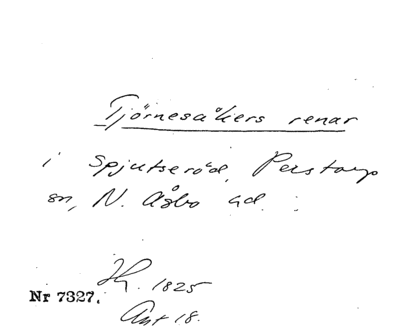 Tjörnesåkers renar
i Spjutseröd, Perstorp
sn, N. Åsbo hd.
Nr 7327.
Hg. 1825
Akt 18.